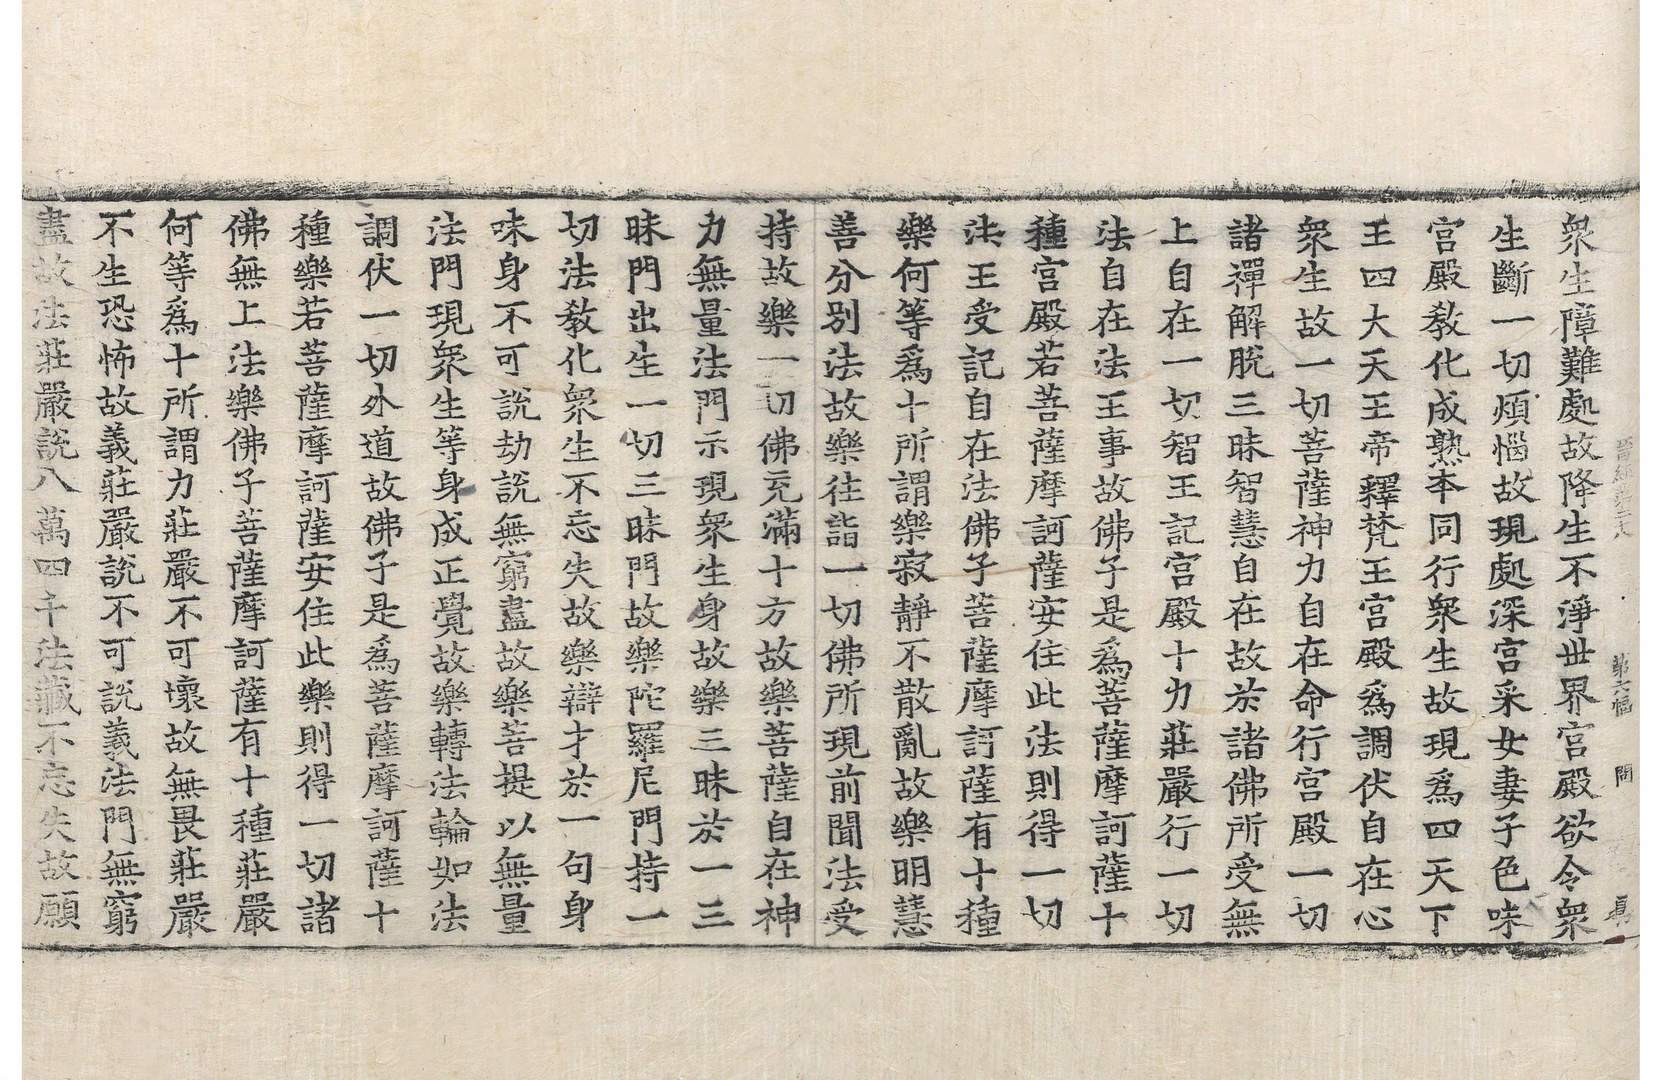 晉經第二八　第六幅　問
眾生障難處故降生不淨世界宮殿欲令眾
生斷一切煩惱故現處深宮采女妻子色味
宮殿教化成熟本同行眾生故現為四天下
王四大天王帝釋梵王宮殿為調伏自在心
眾生故一切菩薩神力自在命行宮殿一切
諸禪解脫三昧智慧自在故於諸佛所受無
上自在一切智王記宮殿十力莊嚴行一切
法自在法王事故佛子是為菩薩摩訶薩十
種宮殿若菩薩摩訶薩安住此法則得一切
法王受記自在法佛子菩薩摩訶薩有十種
樂何等為十所謂樂寂靜不散亂故樂明慧
善分別法故樂往詣一切佛所現前聞法受
持故樂一切佛充滿十方故樂菩薩自在神
力無量法門示現眾生身故樂三昧於一三
昧門出生一切三昧門故樂陀羅尼門持一
切法教化眾生不忘失故樂辯才於一句身
味身不可說劫說無窮盡故樂菩提以無量
法門現眾生等身成正覺故樂轉法輪如法
調伏一切外道故佛子是為菩薩摩訶薩十
種樂若菩薩摩訶薩安住此樂則得一切諸
佛無上法樂佛子菩薩摩訶薩有十種莊嚴
何等為十所謂力莊嚴不可壞故無畏莊嚴
不生恐怖故義莊嚴說不可說義法門無窮
盡故法莊嚴說八萬四千法藏不忘失故願